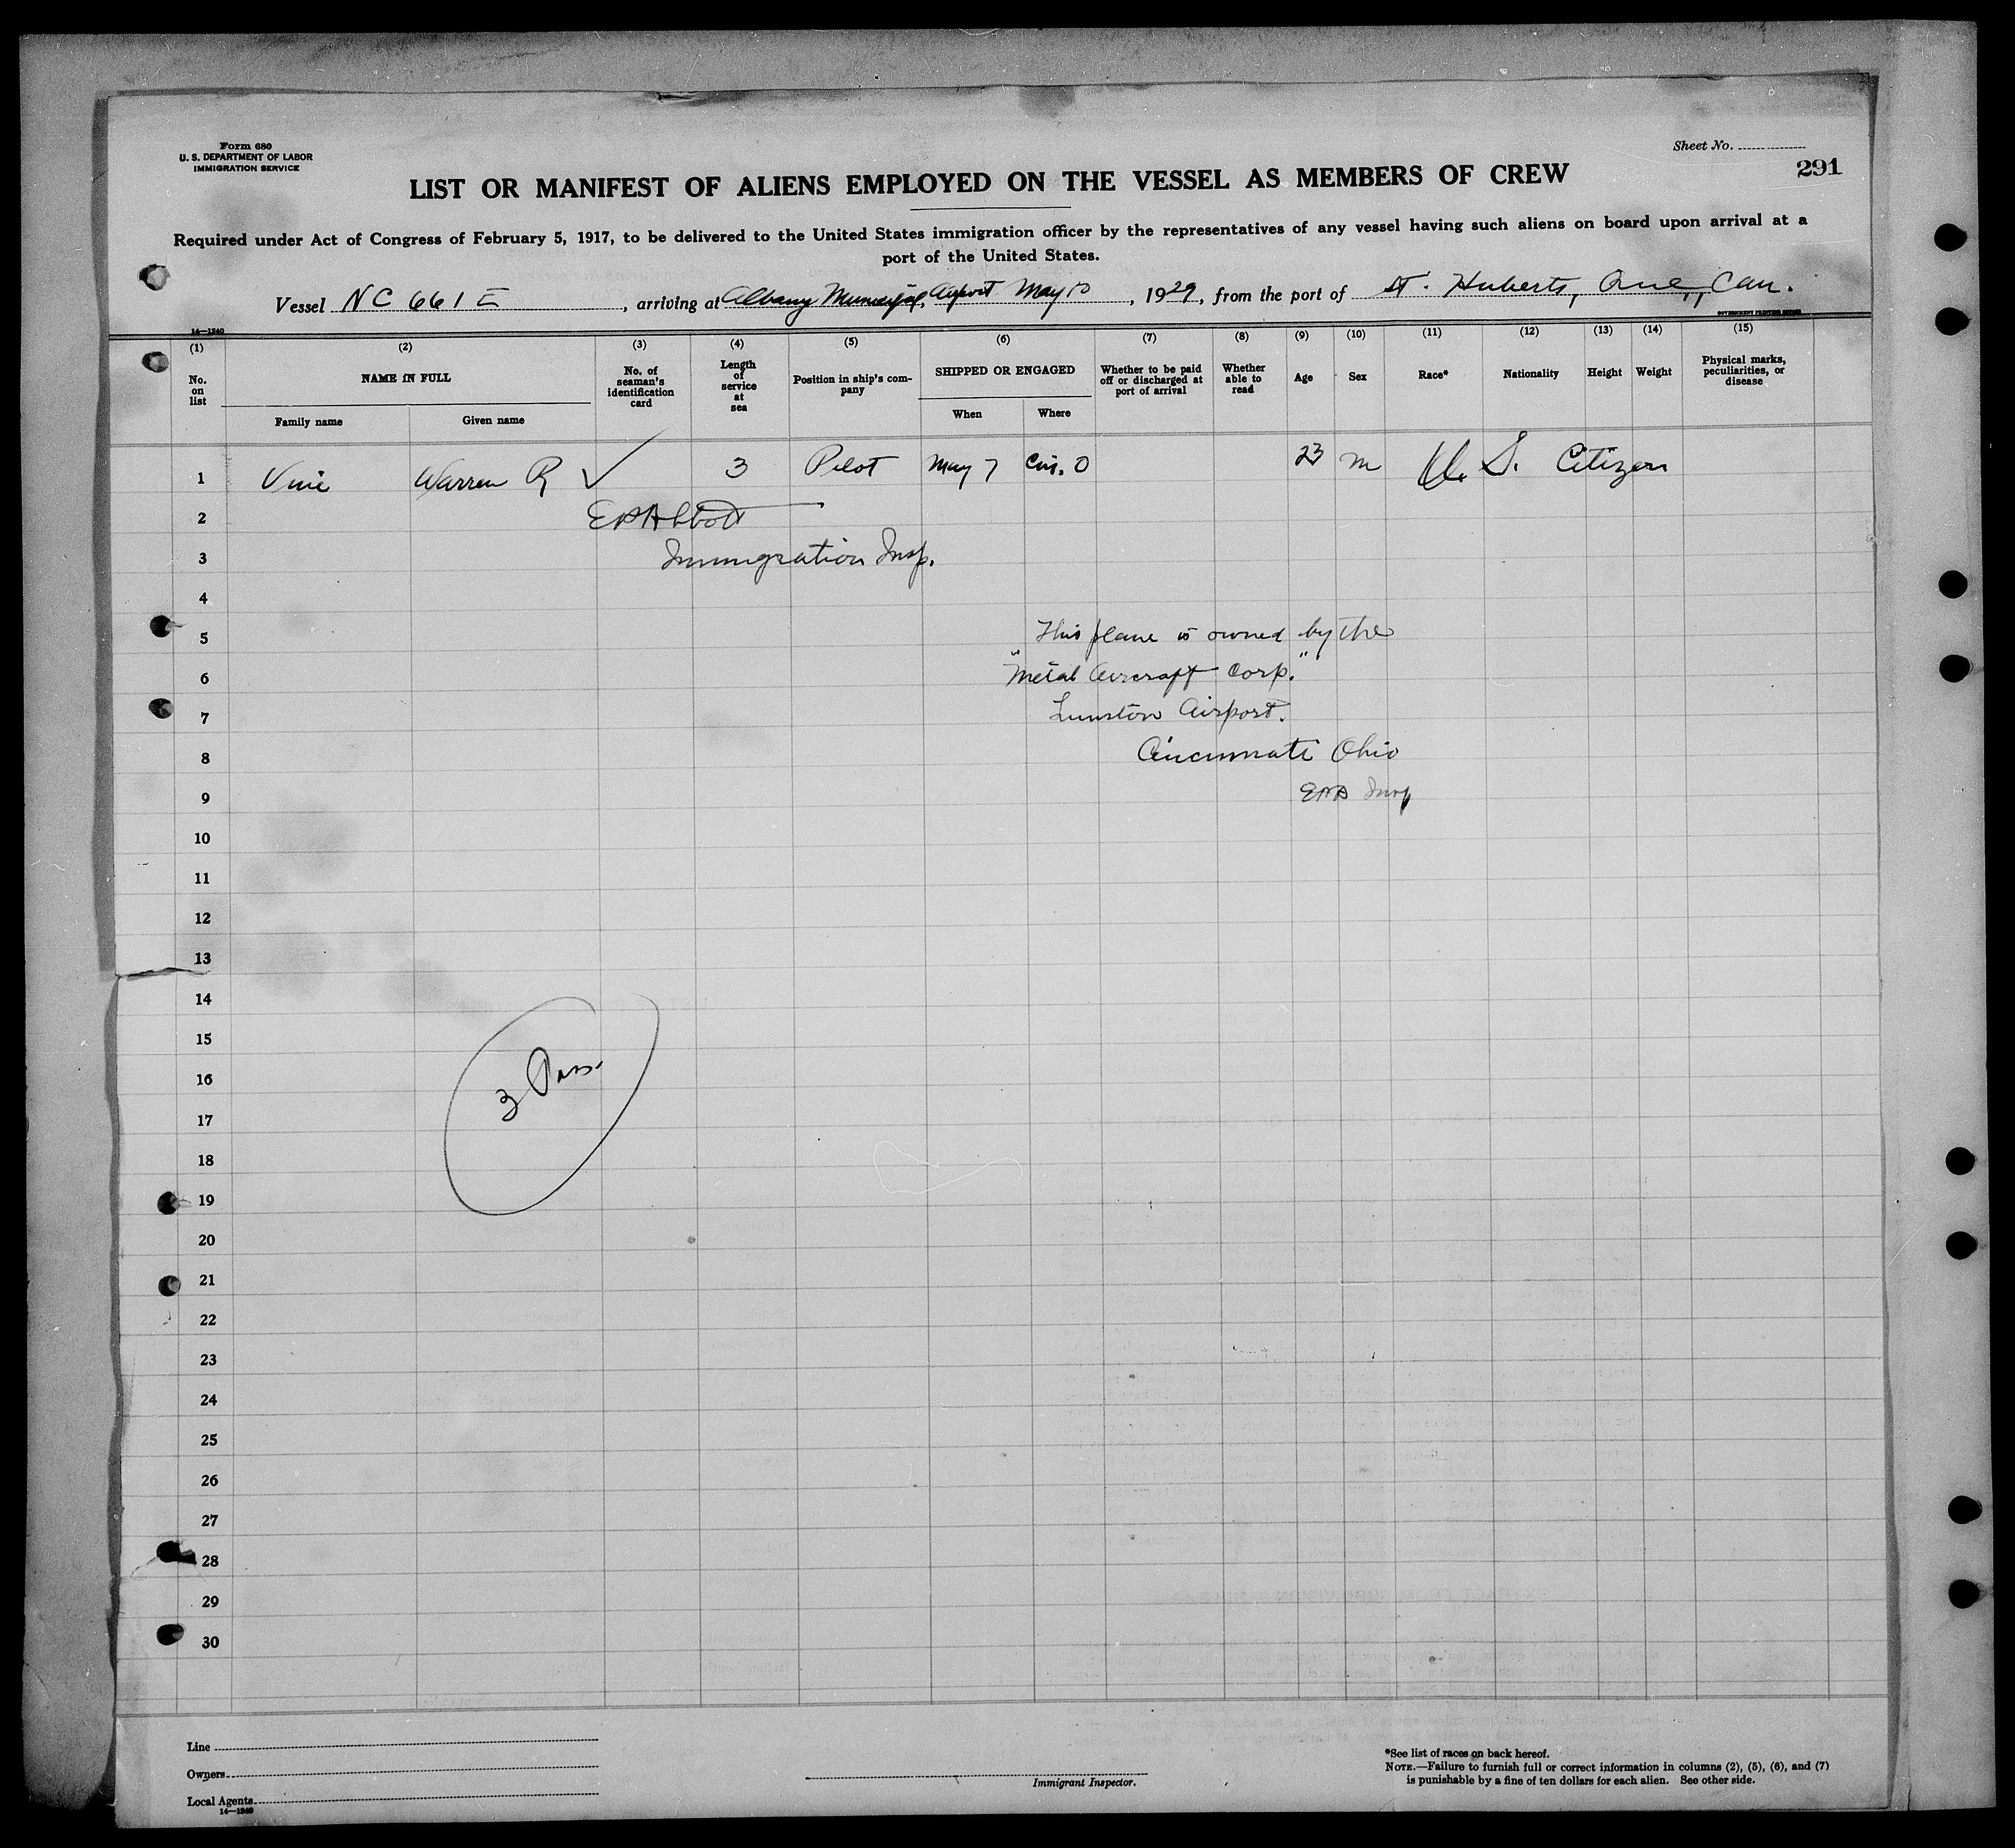 Form 680
U. S. DEPARTMENT OF LABOR
IMMIGRATION SERVICE
Sheet No.
291
LIST OR MANIFEST OF ALIENS EMPLOYED ON THE VESSEL AS MEMBERS OF CREW
Required under Act of Congress of February 5, 1917, to be delivered to the United States immigration officer by the representatives of any vessel having such aliens on board upon arrival at a
port of the United States.
Vessel NC 661E, arriving at Albany Municipal Airport May 10, 1929, from the port of St. Huberts, Que., Can.
14—1240
GOVERNMENT PRINTING OFFICE
(1) (2) (3) (4) (5) (6) (7) (8) (9) (10) (11) (12) (13) (14) (15)
No. on list
NAME IN FULL
Family name
Given name
No. of seaman's identification card
Length of service at sea
Position in ship's company
SHIPPED OR ENGAGED
When
Where
Whether to be paid off or discharged at port of arrival
Whether able to read
Age
Sex
Race*
Nationality
Height
Weight
Physical marks, peculiarities, or disease
1 Warren R ✓ 3 Pilot May 7 Cin. O 23 m U. S. Citizen
2 EPAbbott
3 Immigration Insp.
4
5 This plane is owned by the
6 "Metal Aircraft Corp."
7 Airport.
8 Cincinnati Ohio
9 Insp
10
11
12
13
14
15
3 Pass.
16
17
18
19
20
21
22
23
24
25
26
27
28
29
30
Line
Owners
Local Agents
14—1240
Immigrant Inspector.
*See list of races on back hereof.
NOTE.—Failure to furnish full or correct information in columns (2), (5), (6), and (7)
is punishable by a fine of ten dollars for each alien. See other side.